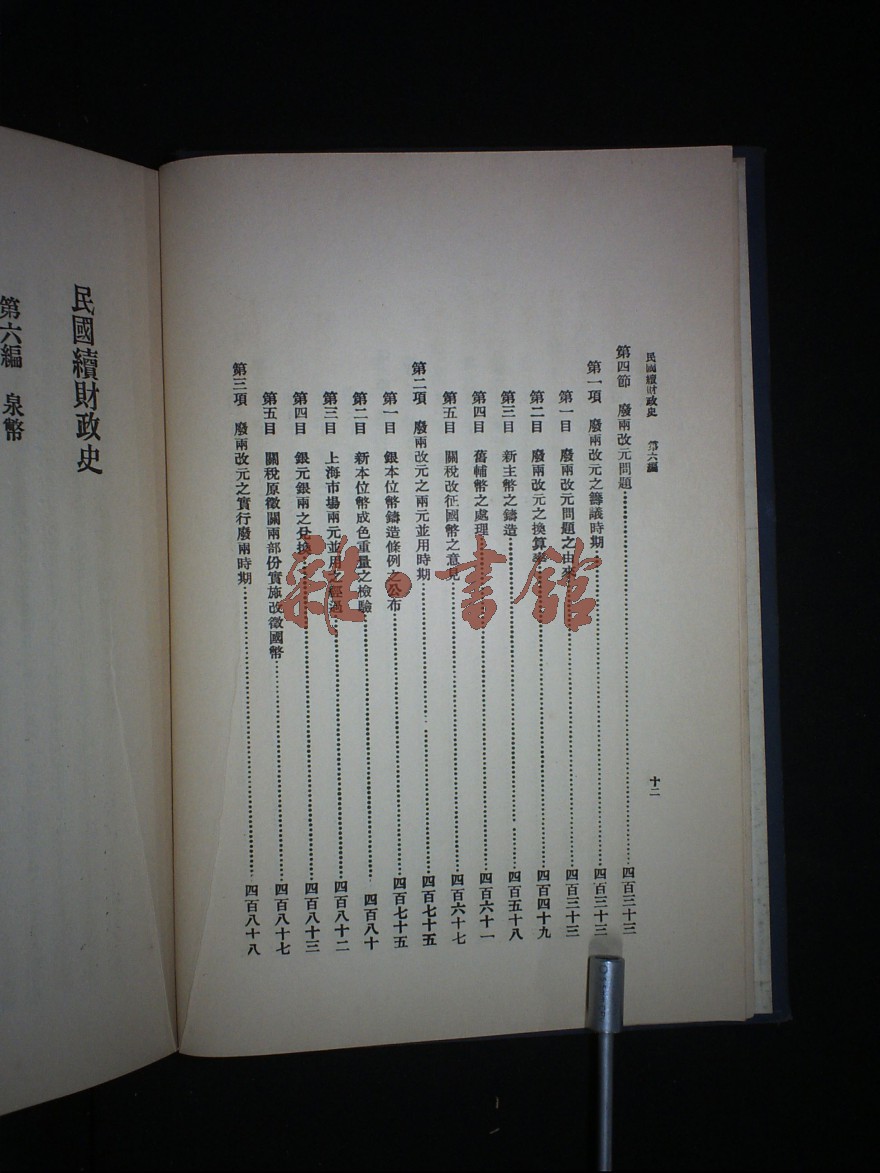 民國續財政史　第六編　十二
第四節　廢兩改元問題……四百三十三
第一項　廢兩改元之籌議時期……四百三十三
第一目　廢兩改元問題之由來……四百三十三
第二目　廢兩改元之換算率……四百四十九
第三目　新主幣之鑄造……四百五十八
第四目　舊輔幣之處理……四百六十一
第五目　關稅改征國幣之意見……四百六十七
第二項　廢兩改元之兩元並用時期……四百七十五
第一目　銀本位幣鑄造條例之公布……四百七十五
第二目　新本位幣成色重量之檢驗……四百八十
第三目　上海市場兩元並用之經過……四百八十二
第四目　銀元銀兩之兌換……四百八十三
第五目　關稅原徵關兩部份實施改徵國幣……四百八十七
第三項　廢兩改元之實行廢兩時期……四百八十八
民國續財政史
第六編　泉幣
雜·書館